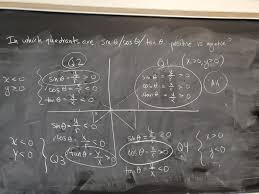 In which quadrants are sin θ / cos θ / tan θ positive or negative?
Q2
Q1 (x>0, y>0)
x<0
y>0
sin θ = y/r > 0
cos θ = x/r < 0
tan θ = y/x < 0
sin θ = y/r > 0
cos θ = x/r > 0
tan θ = y/x > 0
All
x<0
y<0
Q3
sin θ = y/r < 0
cos θ = x/r < 0
tan θ = y/x > 0
sin θ = y/r < 0
cos θ = x/r > 0
tan θ = y/x < 0
Q4
x>0
y<0